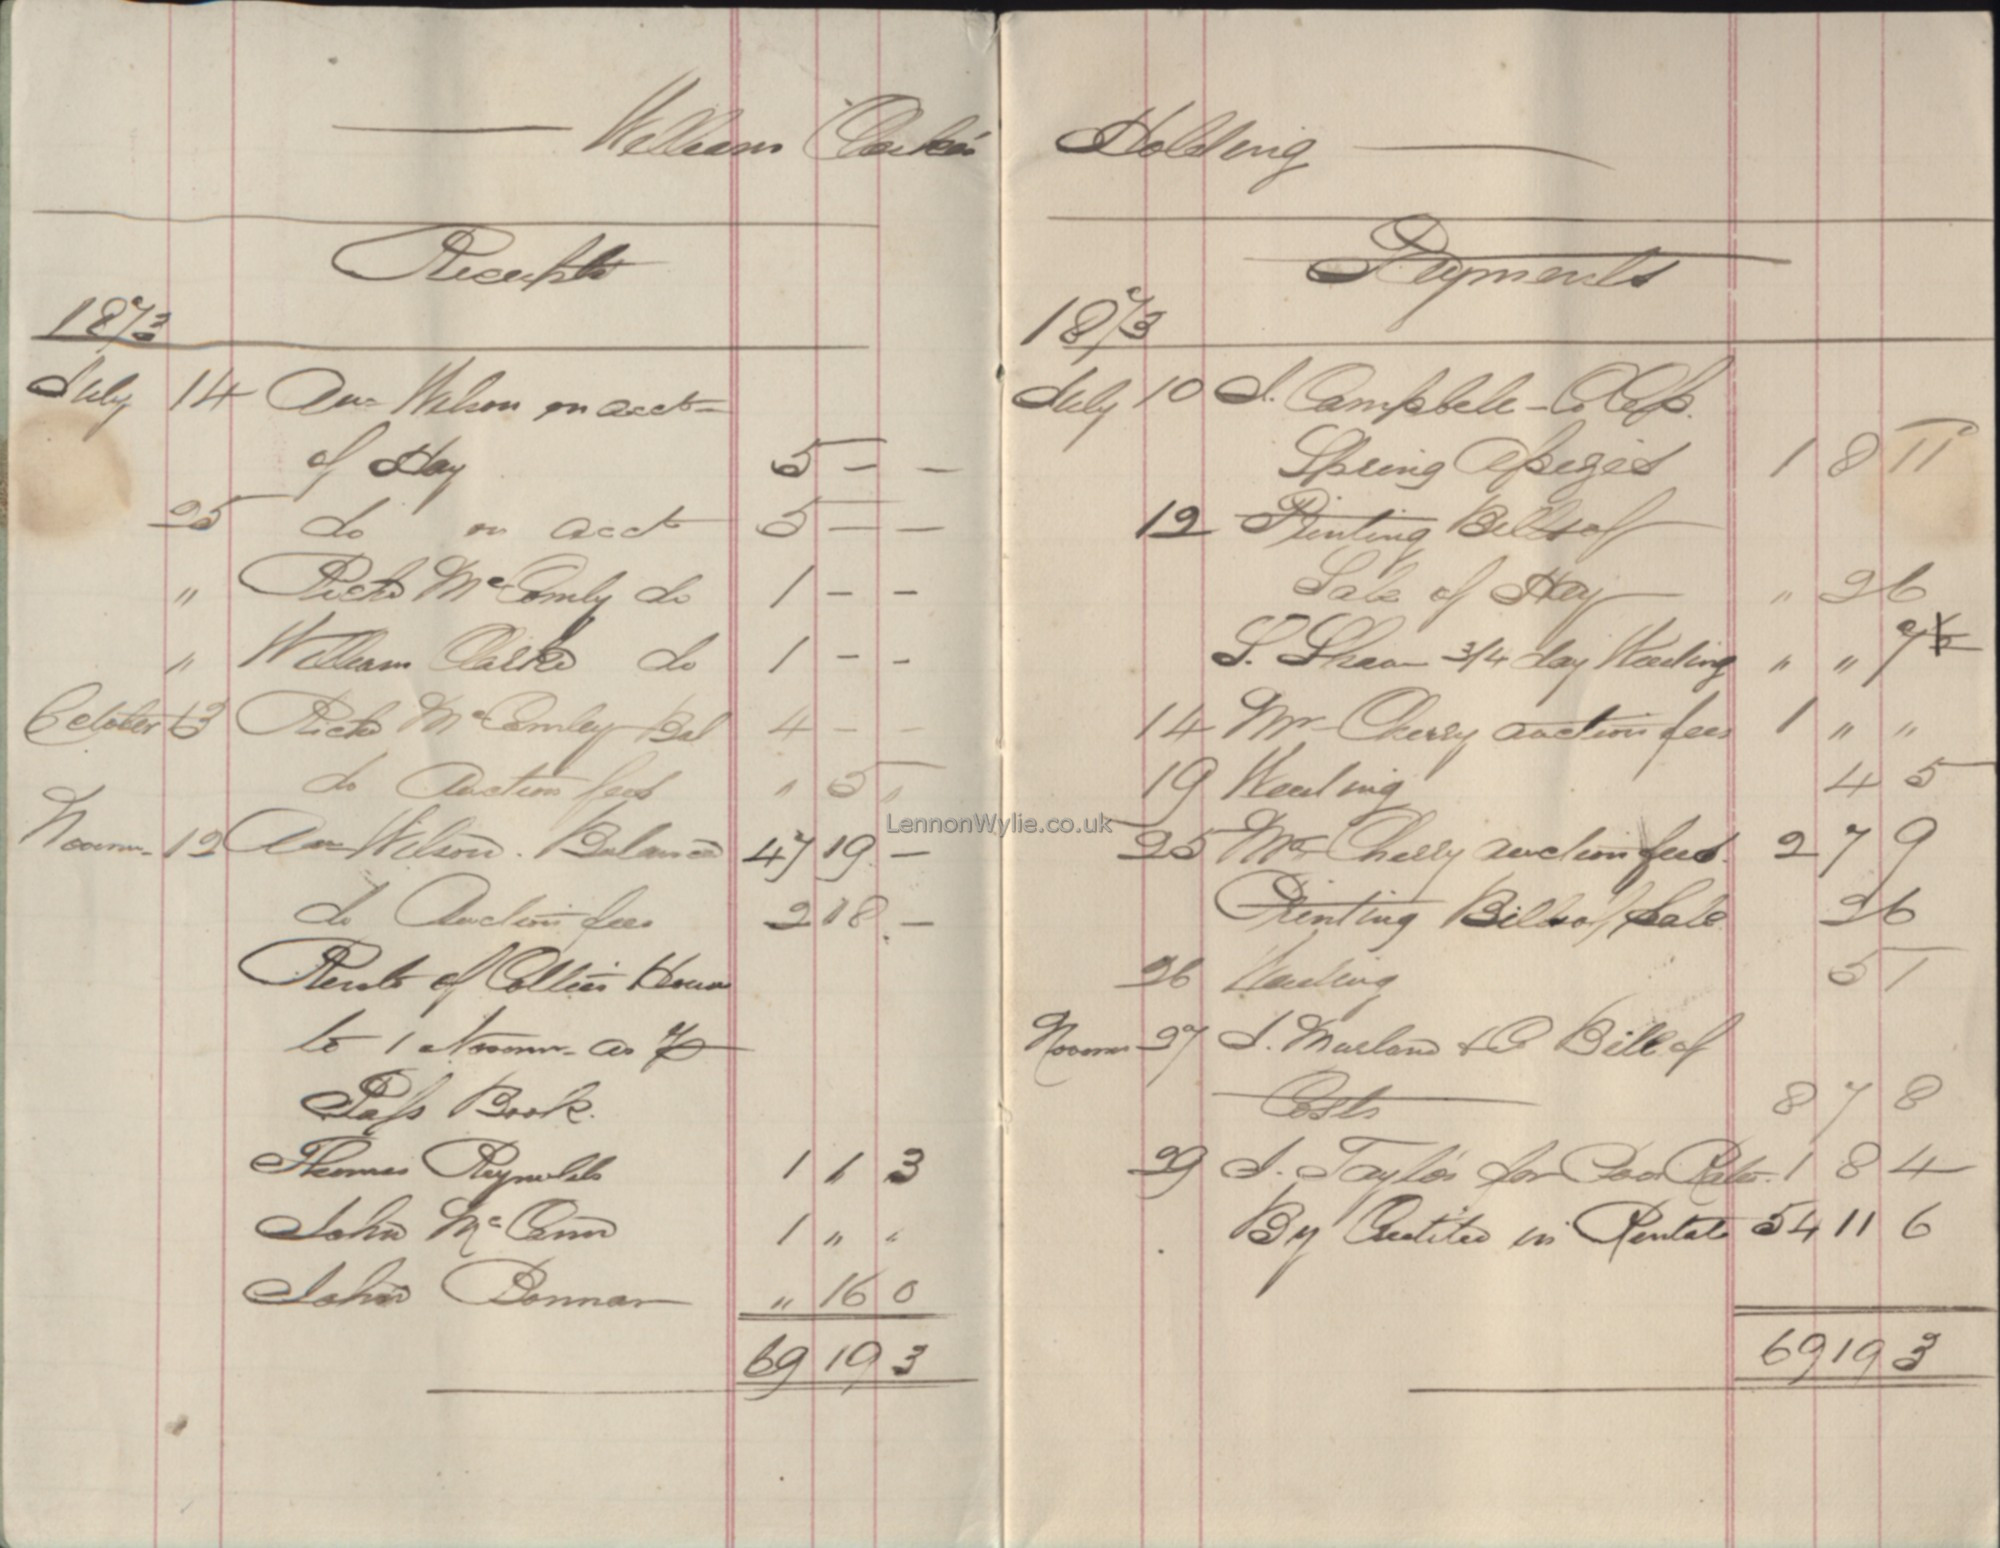 William Clarke's Holding
Receipts
1873
July 14 Wilson on acct
of Hay 5 - -
25 do on acct 5 - -
" Richd McComly do 1 - -
" William Clarke do 1 - -
October 13 Richd McComley Bal 4 - -
do Auction fees " 5 "
Novemr 12 Wilson. Balance 47 19 -
do Auction fees 2 18 -
Rents of Collier Houses
to 1 Novemr as
Pass Book.
Thomas Reynolds 1 1 3
John McCann 1 " "
John Bonnar " 16 0
69 19 3
Payments
1873
July 10 J. Campbell - Co Cess.
Spring Assizes 1 8 11
12 Printing Bills of
Sale of Hay " 2 6
S. Shean 3/4 day Weeding " " 7 ½
14 Mr Cherry auction fees 1 " "
LennonWylie.co.uk
19 Weeding 4 5
25 Mr Cherry auction fees 2 7 9
Printing Bills of Sale 2 6
26 Weeding 5 1
Novemr 27 J. Murland & Co Bill of
Costs 8 7 8
29 J. Taylor for Poor Rate. 1 8 4
By Credited in Rental 54 11 6
69 19 3